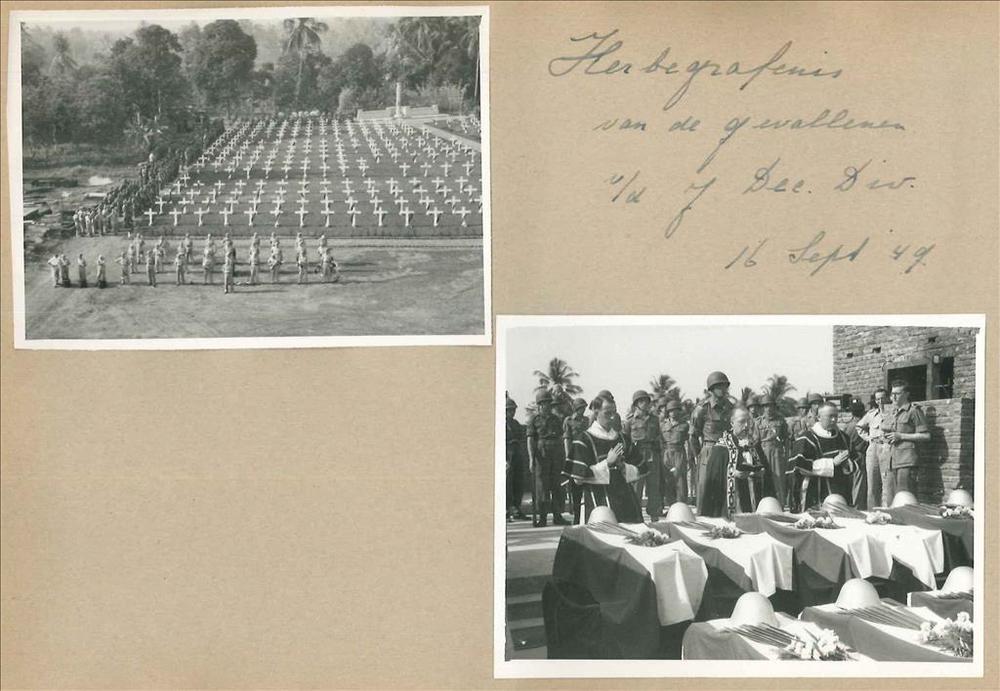 Herbegrafenis
van de gevallenen
v/d 7 Dec. Div.
16 Sept '49.